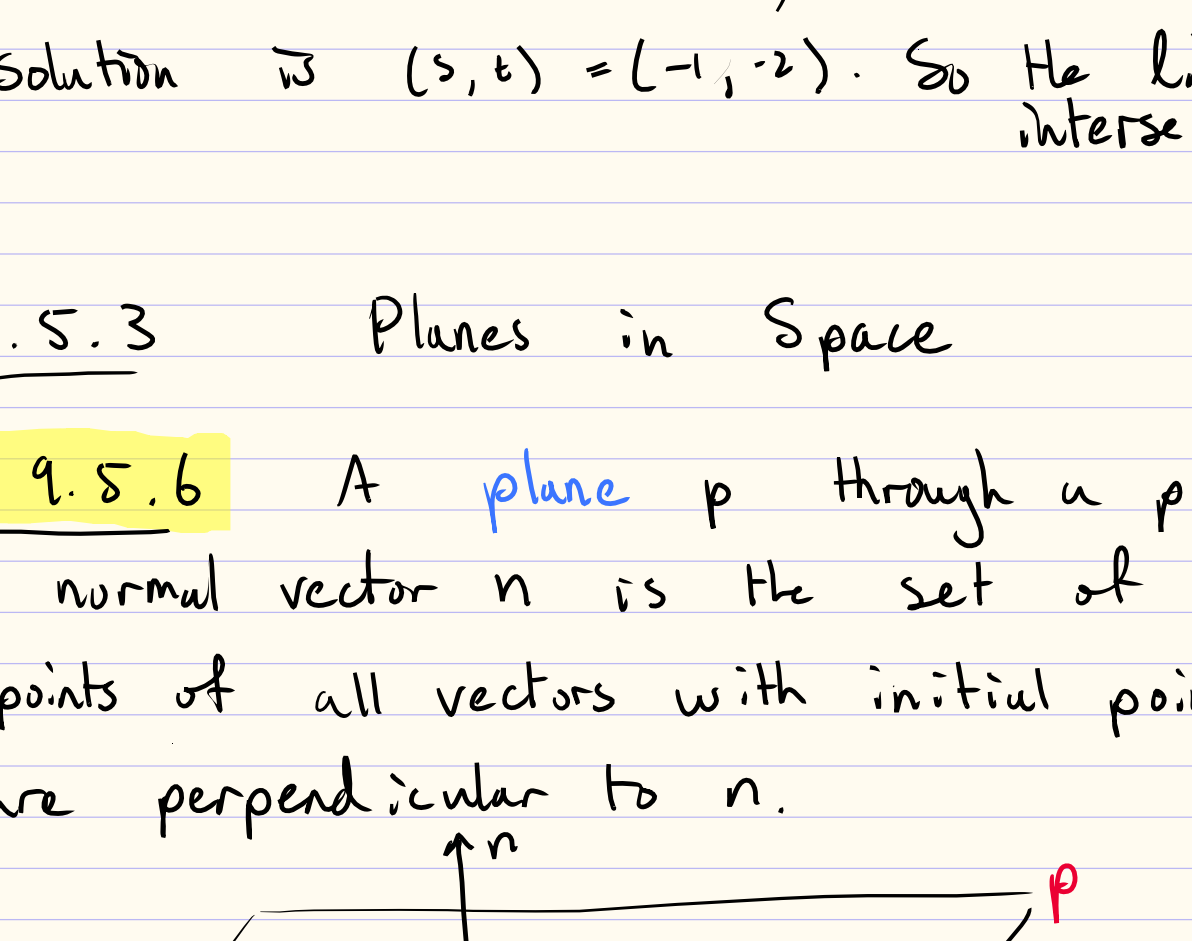 solution is (s, t) = (-1, -2). So the li
interse
.5.3 Planes in Space
9.5.6 A plane p through a p
normal vector n is the set of
points of all vectors with initial poi
are perpendicular to n.
n
p